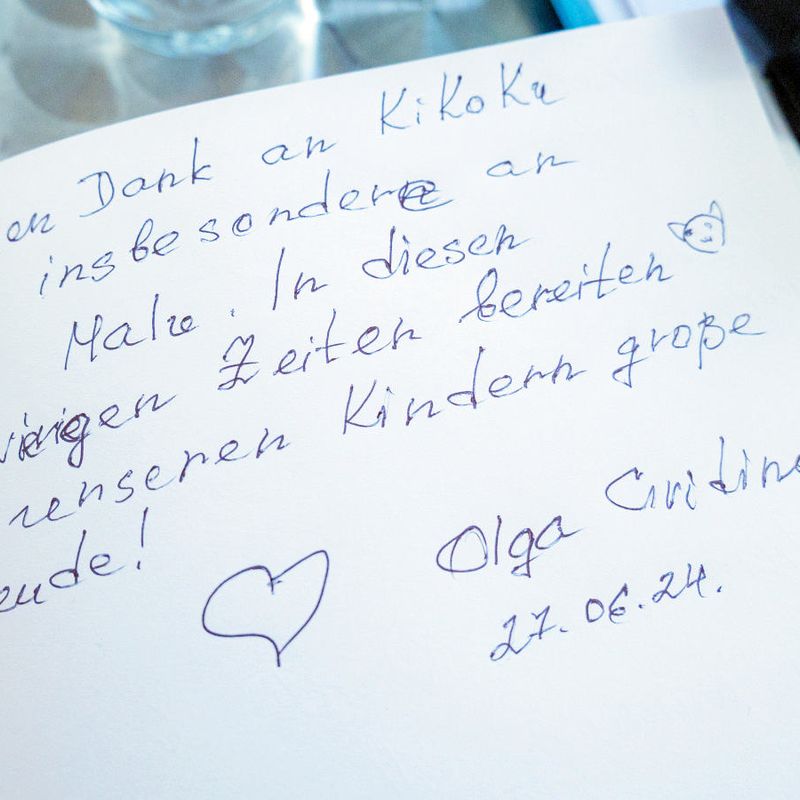 en Dank an KiKoKu
insbesondere an
Malu. In diesen
Zeiten bereiten
unseren Kindern große
eude!
Olga
27.06.24.